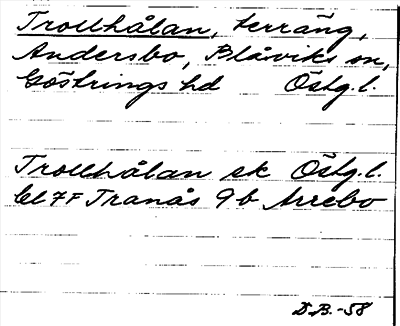 Trollhålan, terräng,
Andersbo, Blåviks sn,
Göstrings hd Östg.l.
Trollhålan ek Östg.l.
bl 7F Tranås 9b Arrebo
D.B.-58